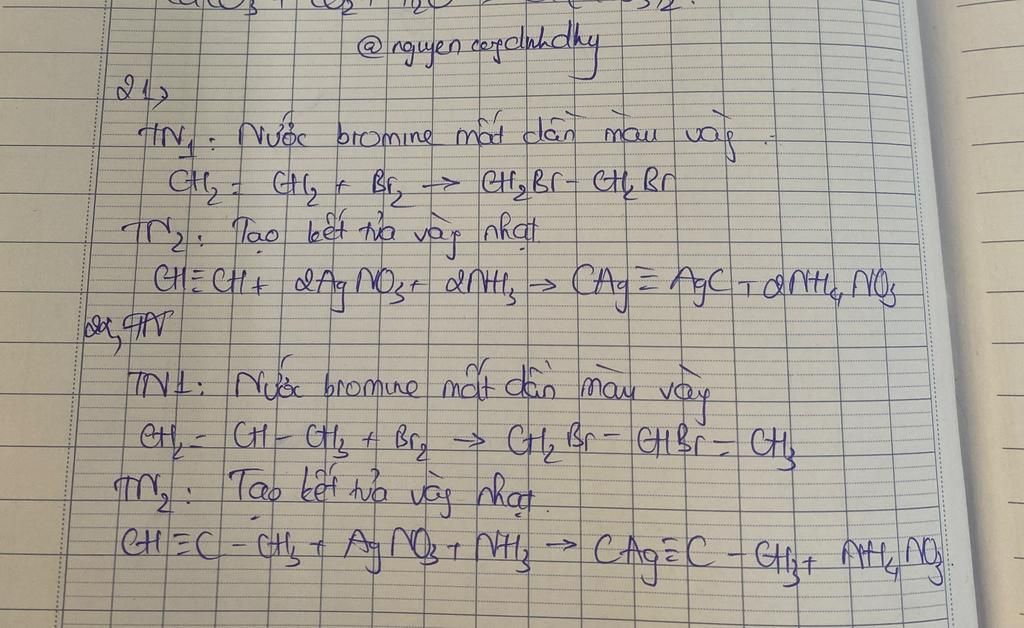 @nguyen
21,
TN1: Nước bromine mất dần màu vàg.
CH2 = CH2 + Br2 → CH2Br - CH2Br
TN2: Tạo kết tủa vàg nhạt
CH≡CH + 2AgNO3 + 2NH3 → CAg ≡ AgC + 2NH4NO3
TN
TN1: Nước bromine mất dần màu vàg
CH2 = CH - CH3 + Br2 → CH2Br - CHBr - CH3
TN2: Tạo kết tủa vàg nhạt.
CH≡C - CH3 + AgNO3 + NH3 → CAg≡C - CH3 + NH4NO3